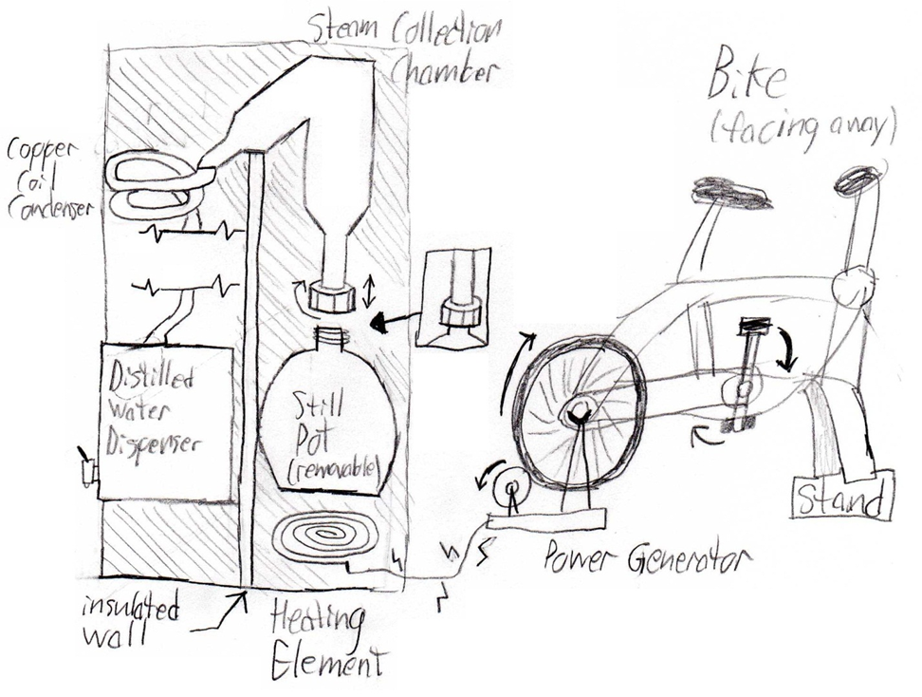 Steam Collection
Chamber
Bike
(facing away)
Copper
Coil
Condenser
Distilled
Water
Dispenser
Still
Pot
(removable)
Stand
Power Generator
insulated
wall
Heating
Element